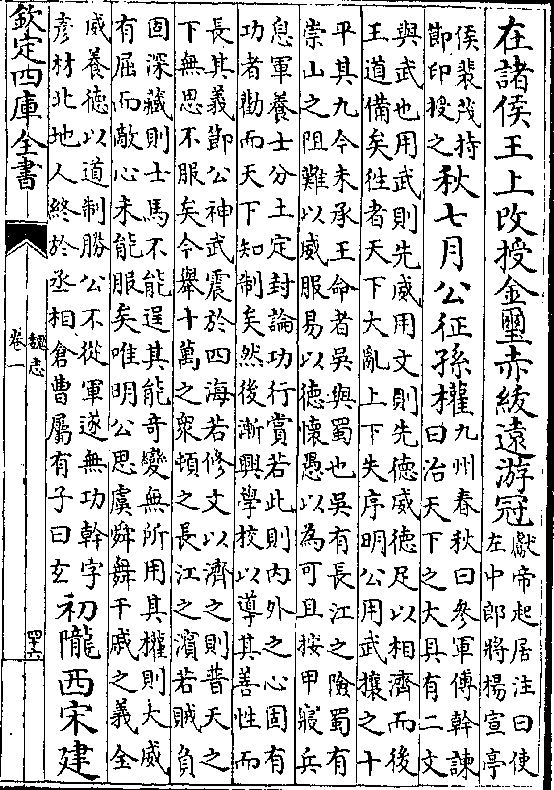 在諸侯王上改授金璽赤紱遠游冠
獻帝起居注曰使
左中郎將楊宣亭
侯裴茂持
節印授之
秋七月公征孫權
九州春秋曰參軍傅幹諫
曰治天下之大具有二文
與武也用武則先威用文則先德威德足以相濟而後
王道備矣往者天下大亂上下失序明公用武攘之十
平其九今未承王命者吳與蜀也吳有長江之險蜀有
崇山之阻難以威服易以德懷愚以為可且按甲寢兵
息軍養士分土定封論功行賞若此則内外之心固有
功者勸而天下知制矣然後漸興學校以導其善性而
長其義節公神武震於四海若修文以濟之則普天之
下無思不服矣今舉十萬之衆頓之長江之濱若賊負
固深藏則士馬不能逞其能奇變無所用其權則大威
有屈而敵心未能服矣唯明公思虞舜舞干戚之義全
威養德以道制勝公不從軍遂無功幹字
彦材北地人終於丞相倉曹屬有子曰玄
初隴西宋建
欽定四庫全書
魏志
卷一
四六